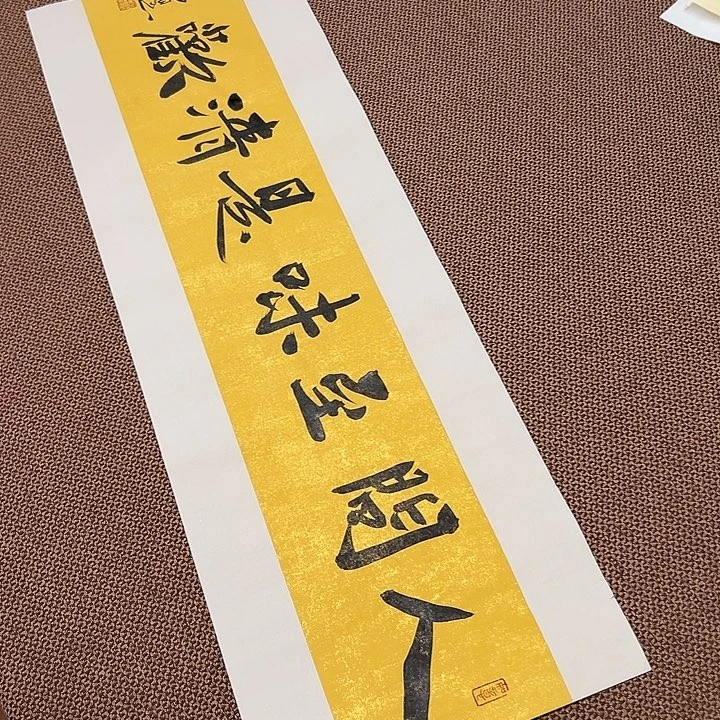 人間至味是清歡